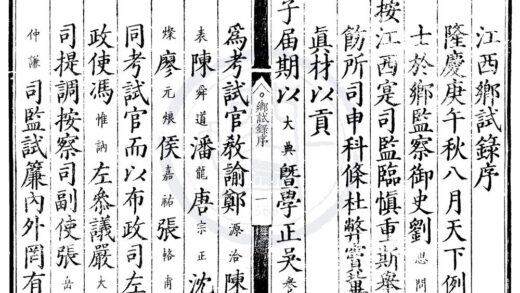 江西鄉試錄序
隆慶庚午秋八月天下例
士於鄉監察御史劉思問
按江西寔司監臨慎重斯舉
飭所司申科條杜弊竇
眞材以貢
子屆期以大典暨學正吳
鄉試錄序 一
爲考試官教諭鄭源洽陳
表陳舜道潘龍唐宗正沈
燦廖元侯嘉祐張輅甫
同考試官而以布政司左
政使馮惟訥左參議嚴大
司提調按察司副使張岳
仲謙司監試簾內外罔有